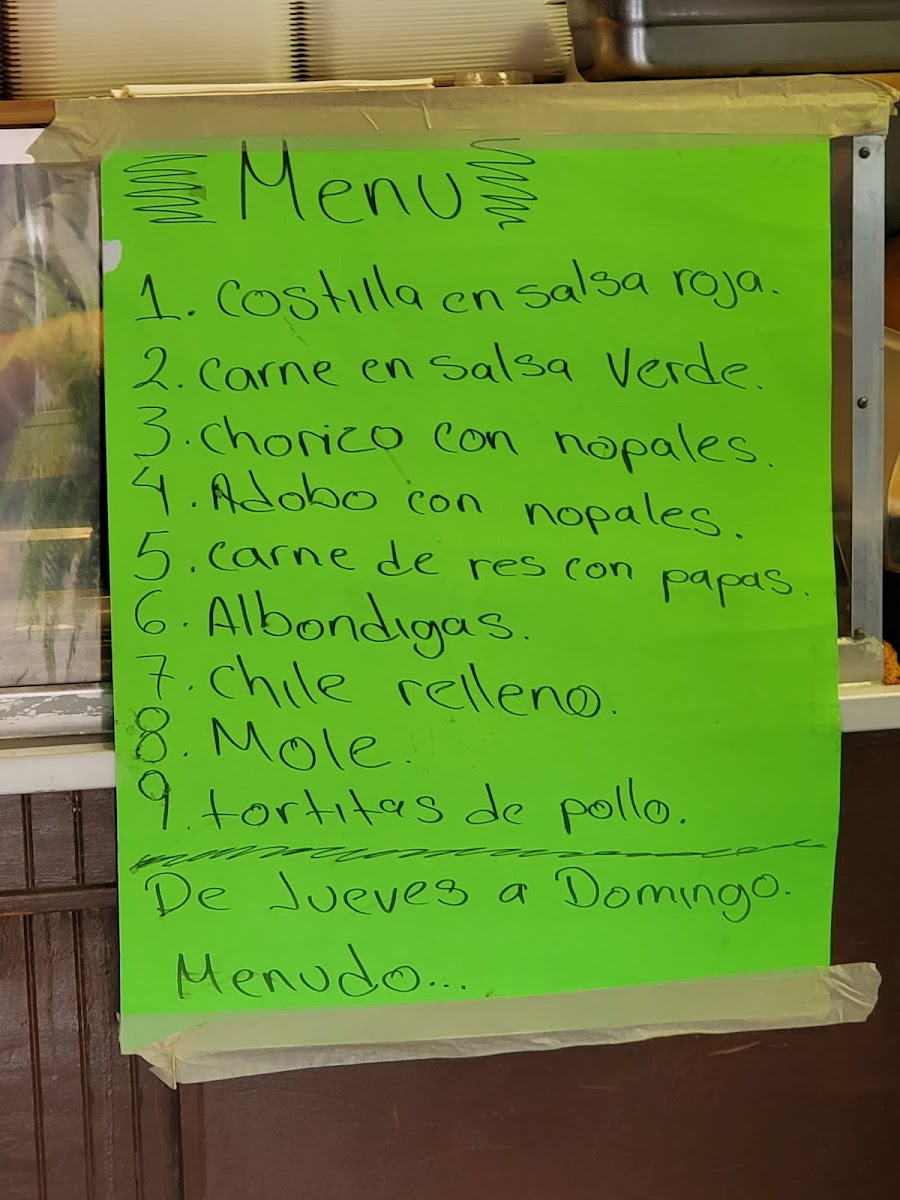 Menu
1. Costilla en salsa roja.
2. Carne en salsa verde.
3. Chorizo con nopales.
4. Adobo con nopales.
5. Carne de res con papas.
6. Albondigas.
7. Chile relleno.
8. Mole.
9. tortitas de pollo.
De Jueves a Domingo.
Menudo...